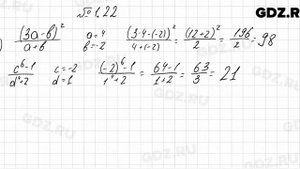 GDZ.RU
№ 1.22
) (3a-b)² / a+b a=4 b=-2 (3·4-(-2))² / 4+(-2) = (12+2)² / 2 = 196 / 2 = 98
c⁶-1 / d²+2 c=-2 d=1 (-2)⁶-1 / 1²+2 = 64-1 / 1+2 = 63 / 3 = 21